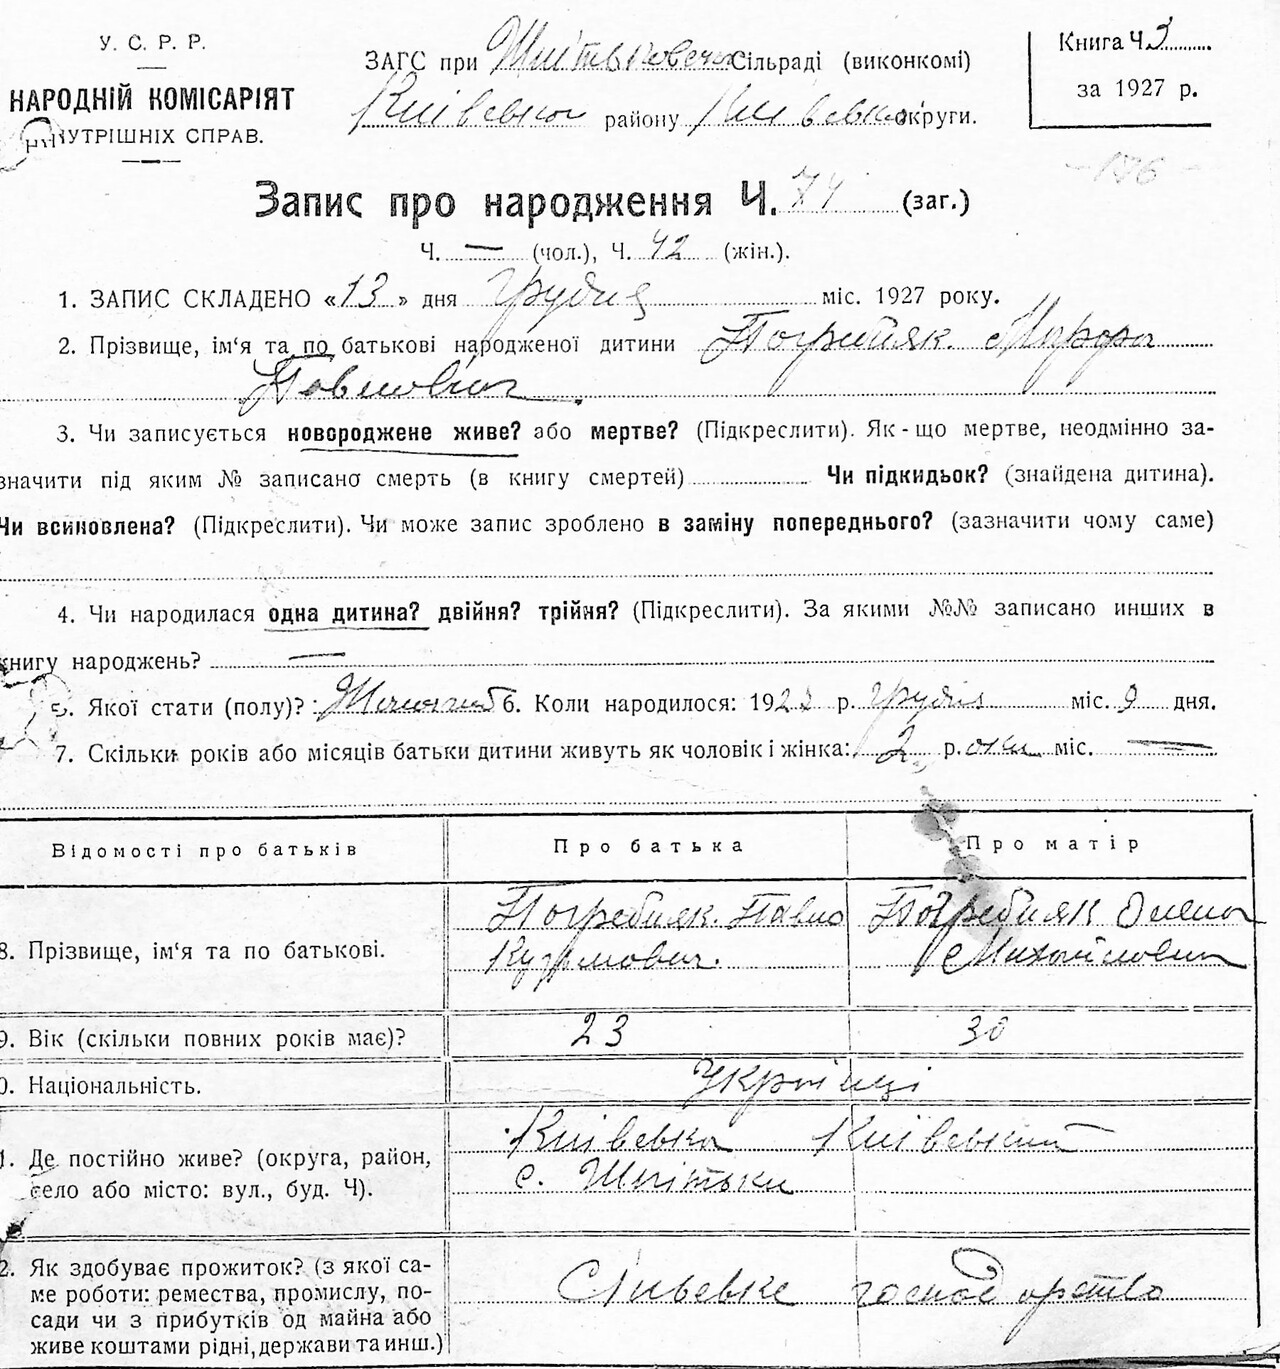 У. С. Р. Р.
НАРОДНІЙ КОМІСАРІЯТ
ВНУТРІШНІХ СПРАВ.
ЗАГС при Сільраді (виконкомі)
Київська району Київська округи.
Книга Ч 3
за 1927 р.
176
Запис про народження Ч. 74 (заг.)
Ч. — (чол.), Ч. 42 (жін.).
1. ЗАПИС СКЛАДЕНО «13» дня грудня міс. 1927 року.
2. Прізвище, ім‘я та по батькові народженої дитини Погребняк
Павлов
3. Чи записується новороджене живе? або мертве? (Підкреслити). Як-що мертве, неодмінно за-
значити під яким № записано смерть (в книгу смертей) Чи підкидьок? (знайдена дитина).
Чи всиновлена? (Підкреслити). Чи може запис зроблено в заміну попереднього? (зазначити чому саме)
4. Чи народилася одна дитина? двійня? трійня? (Підкреслити). За якими №№ записано инших в
книгу народжень? —
5. Якої стати (полу)? : 6. Коли народилося: 192 р. грудня міс. 9 дня.
7. Скільки років або місяців батьки дитини живуть як чоловік і жінка: 2 роки міс. —
Відомості про батьків Про батька Про матір
Погребняк Павло Погребняк Олена
8. Прізвище, ім‘я та по батькові. Кузьмович. Михайловна
9. Вік (скільки повних років має)? 23 30
0. Національність. Українці
Київська Київський
1. Де постійно живе? (округа, район,
село або місто: вул., буд. Ч). с. Шпітьки
2. Як здобуває прожиток? (з якої са-
ме роботи: ремества, промислу, по- Сільське господарство
сади чи з прибутків од майна або
живе коштами рідні, держави та инш.)